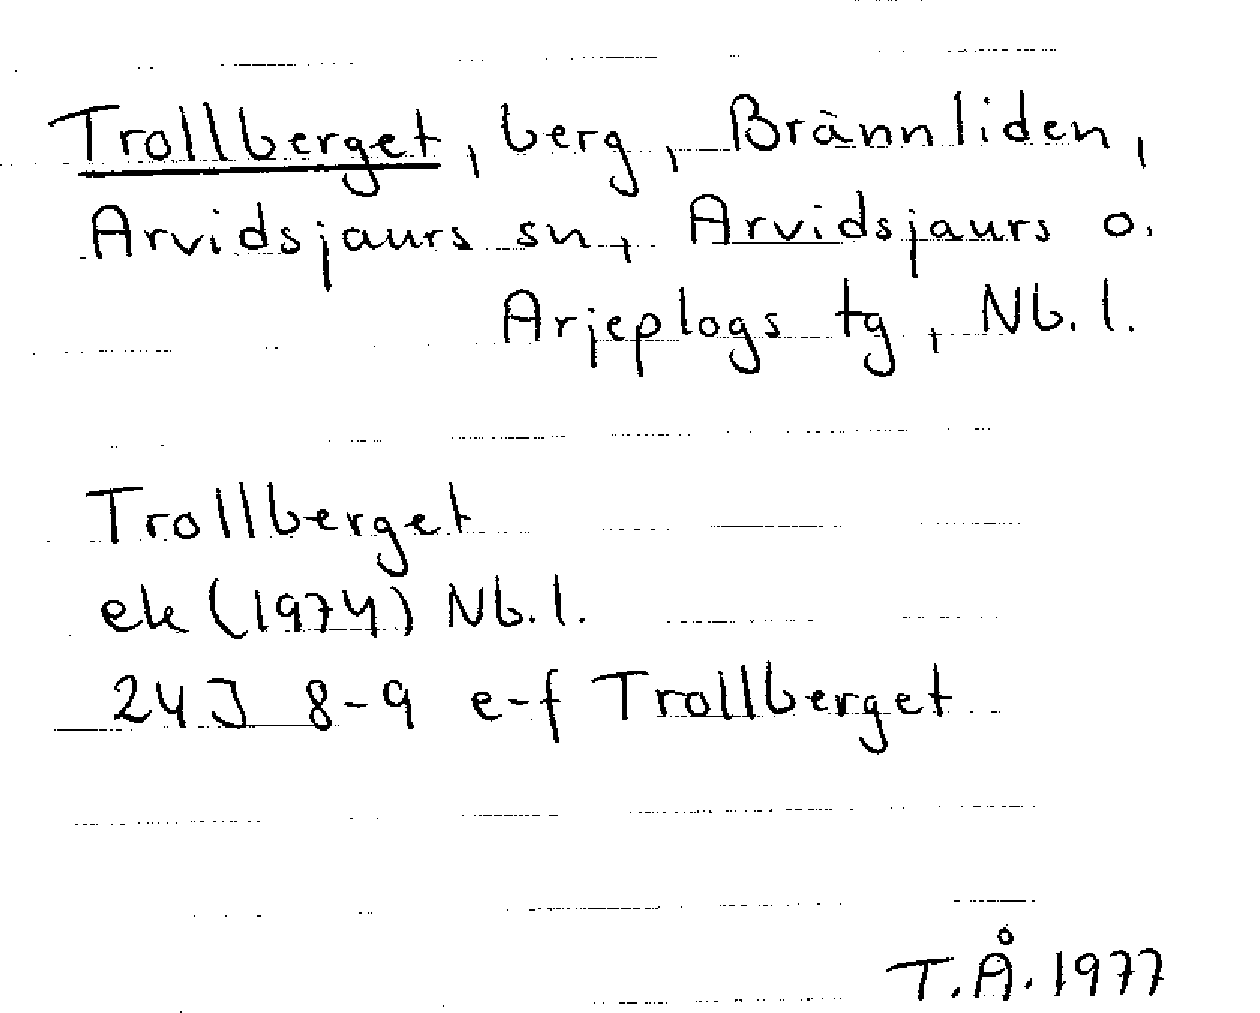 Trollberget, berg, Brännliden,
Arvidsjaurs sn, Arvidsjaurs o.
Arjeplogs tg, Nb. l.
Trollberget
ek (1974) Nb. l.
24J 8-9 e-f Trollberget
T.Å. 1977